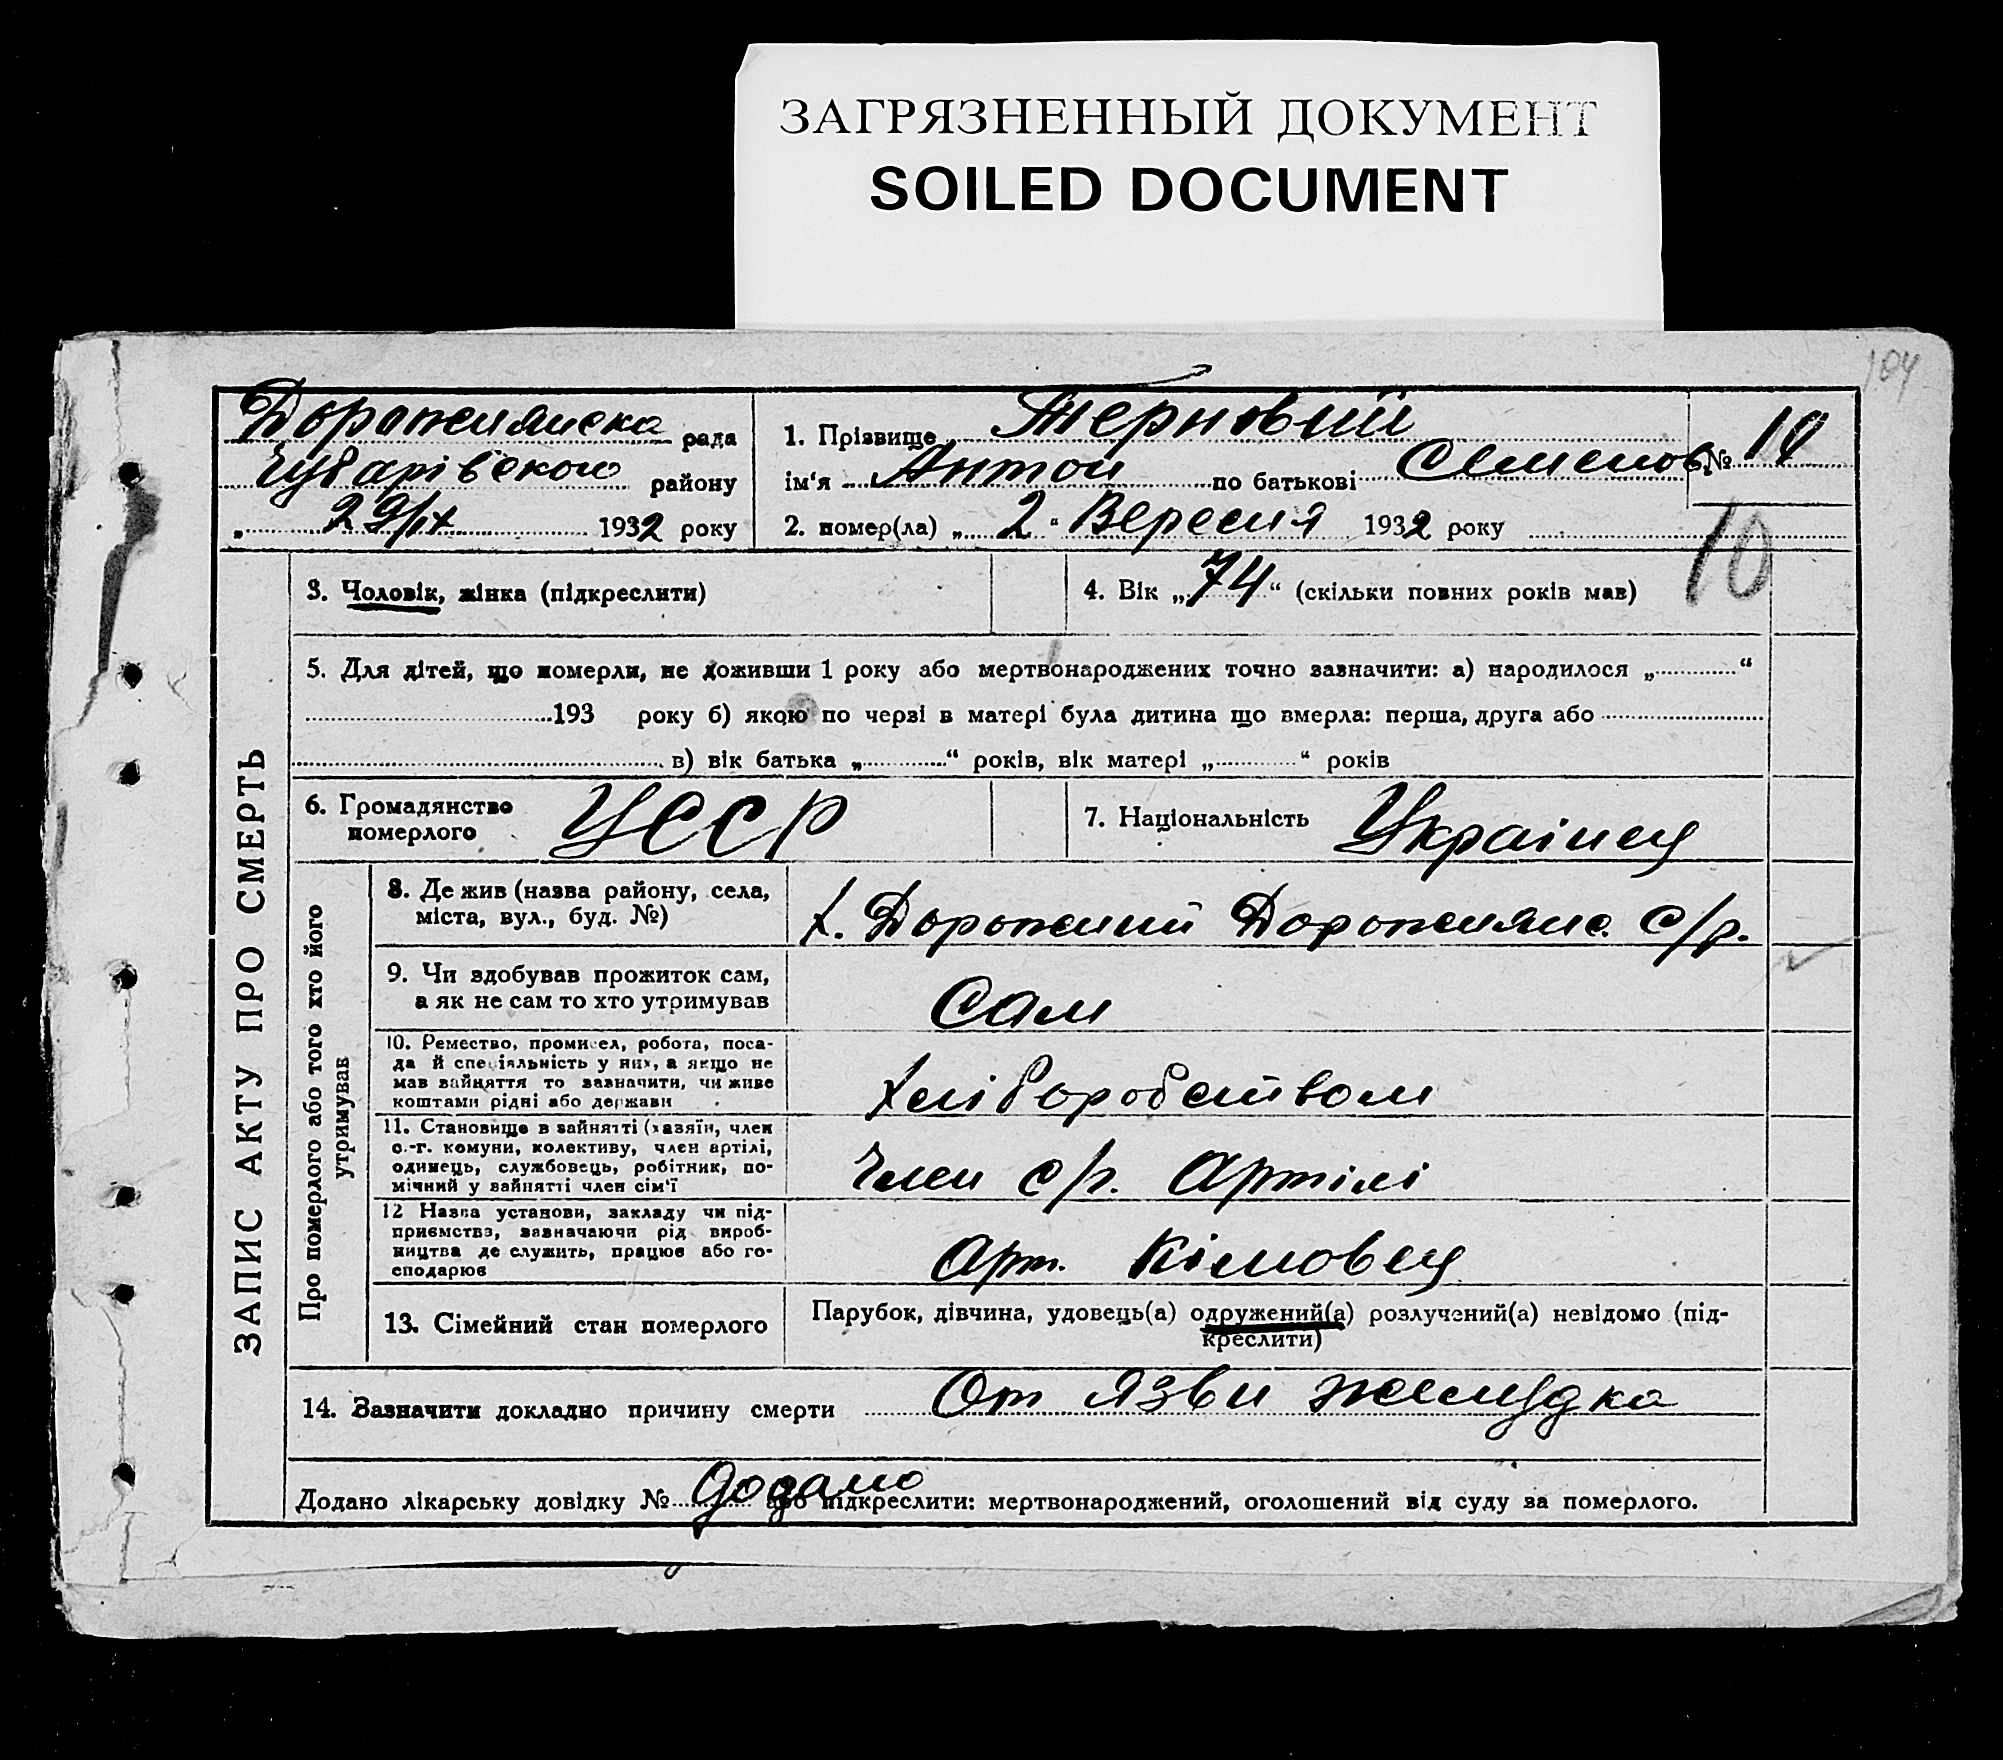 ЗАГРЯЗНЕННЫЙ ДОКУМЕНТ
SOILED DOCUMENT
104
Дорожнянска рада
Чубарівського району
„ 29/IX 1932 року
1. Прізвище Терновий
ім'я Антон по батькові Семенов. №
2. помер(ла) „ 2 “ Вересня 1932 року
10
ЗАПИС АКТУ ПРО СМЕРТЬ
3. Чоловік, жінка (підкреслити)
4. Вік „ 74 “ (скільки повних років мав)
5. Для дітей, що померли, не доживши 1 року або мертвонароджених точно зазначити: а) народилося „ “
193 року б) якою по черзі в матері була дитина що вмерла: перша, друга або
в) вік батька „ “ років, вік матері „ “ років
6. Громадянство
померлого УССР
7. Національність Украінец
Про померлого або того хто його
утримував
8. Де жив (назва району, села,
міста, вул., буд. №)
х. Дорожний Дорожнянс. с/р.
9. Чи здобував прожиток сам,
а як не сам то хто утримував
Сам
10. Ремество, промисел, робота, поса-
да й спеціяльність у них, а якщо не
мав зайняття то зазначити, чи живе
коштами рідні або держави
Хліборобством
11. Становище в зайнятті (хазяїн, член
с.-г. комуни, колективу, член артілі,
одинець, службовець, робітник, по-
мічний у зайнятті член сім'ї
Член с/г. Артілі
12 Назва установи, закладу чи під-
приємства, зазначаючи рід вироб-
ництва де служить, працює або го-
сподарює
Арт. Кімовец
13. Сімейний стан померлого
Парубок, дівчина, удовець(а) одружений(а) розлучений(а) невідомо (під-
креслити)
14. Зазначити докладно причину смерти От язви желудка
Додано лікарську довідку № додано або підкреслити: мертвонароджений, оголошений від суду за померлого.